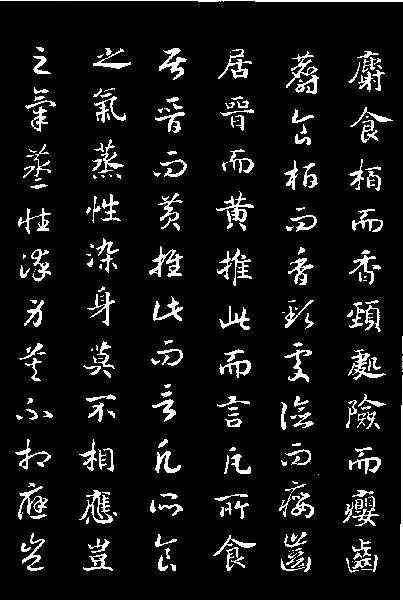 麝食柏而香頸處險而癭齒
麝食柏而香頸處險而癭齒
居晉而黃推此而言凡所食
居晉而黃推此而言凡所食
之氣蒸性染身莫不相應豈
之氣蒸性染身莫不相應豈